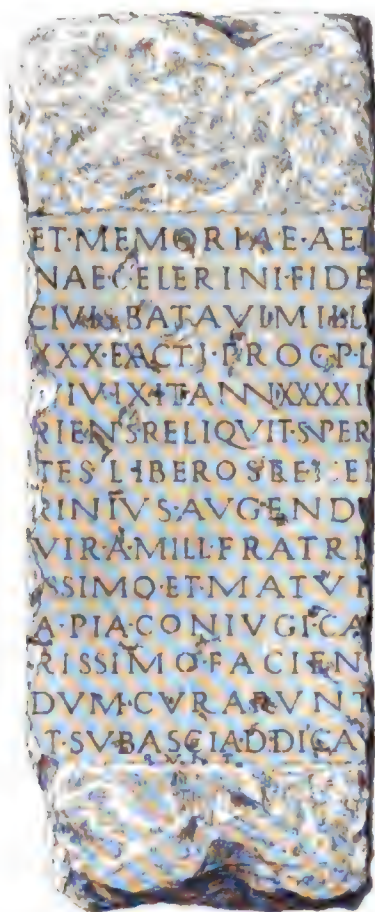 ET·MEMORIAE·AET
NAE CELERINI·FIDE
CIVIS BATAVI·MIL·L
XXX·EXACTI·PROC·P·L
VIVIXIT ANN XXXXI
RIENS RELIQVIT·SVPER
TES·LIBEROS TRES·
RINIVS·AVGEND
VIR·A·MILL·FRATRI
SSIMO·ET·MATV
A·PIA·CONIVGI·CA
RISSIMO·FACIEN
DVM·CVRARVNT
T·SVB ASCIA DDICA